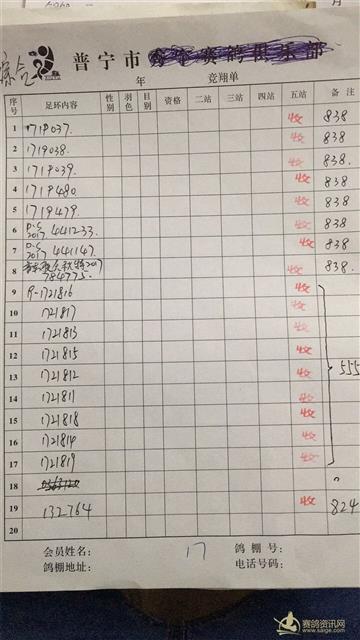 综合 普宁市
年 竞翔单
序号 足环内容 性别 羽色 目别 资格 二站 三站 四站 五站 备注
1 1719037. 收 838
2 1719038. 收 838
3 1719039. 收 838
4 1719480 收 838
5 1719479. 收 838
6 2017 441233. 收 838
7 2017 441147. 收 838
8 2017 784775. 收 838
9 R-1721816 收
10 1721817 收
11 1721813 收
12 1721815 收
13 1721812 收 555
14 1721811 收
15 1721818 收
16 1721814 收
17 1721819 收
18
19 132764 收 824
20
会员姓名: 17 鸽棚号:
鸽棚地址: 电话号码:
赛鸽资讯网
www.saige.com